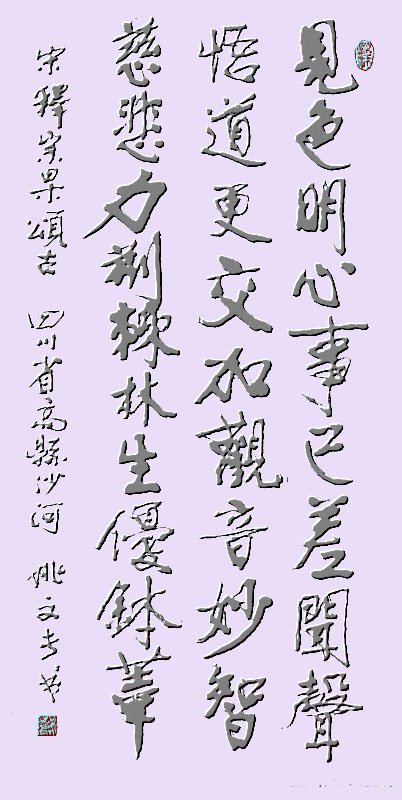 見色明心事已差聞聲
悟道更交加觀音妙智
慈悲力荆棘林生優鉢華
宋釋宗杲頌古 四川省高縣沙河 姚文孝書